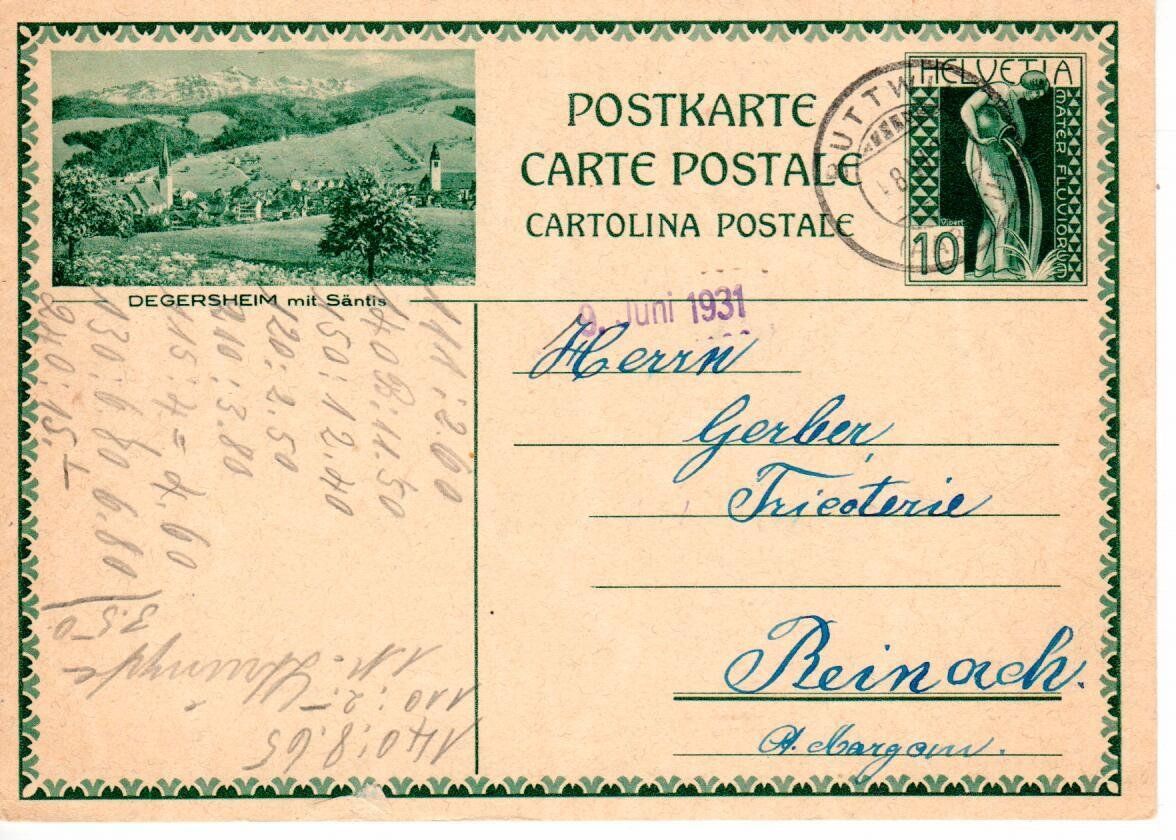 POSTKARTE
CARTE POSTALE
CARTOLINA POSTALE
HELVETIA
MATER FLUVIORUM
Vibert
10
BUTTWIL
DEGERSHEIM mit Säntis
9. Juni 1931
Herrn
Gerber,
Tricoterie
Reinach.
Kt. Aargau.
111 : 2.60
150 : 12.40
120 : 2.50
210 : 3.80
115 : 4 = 4.60
130 : 6.80 6.80
240 : 15.-
3.50
110 : 2.-
140 : 8.65